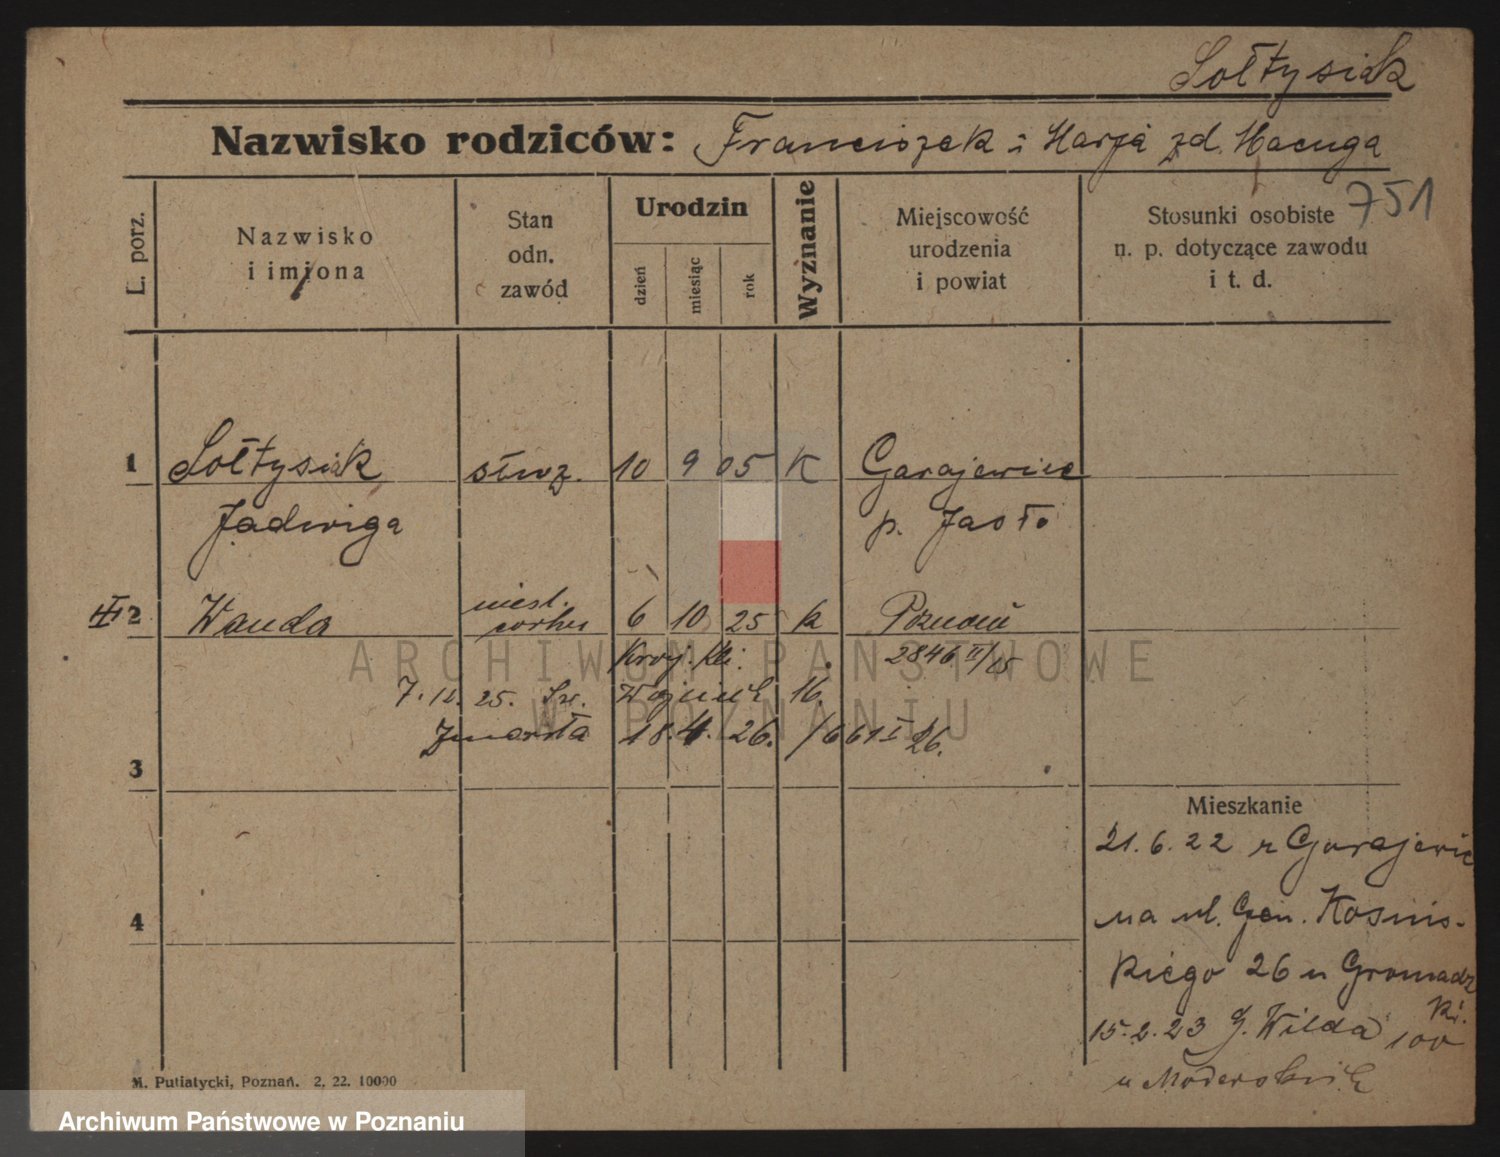 Sołtysiak
Nazwisko rodziców: Franciszek i Marja zd. Macuga
751
L. porz.
Nazwisko
i imiona
Stan
odn.
zawód
Urodzin
dzień
miesiąc
rok
Wyznanie
Miejscowość
urodzenia
i powiat
Stosunki osobiste
n. p. dotyczące zawodu
i t. d.
1 Sołtysiak służ. 10 9 05 K Garajewice
Jadwiga p. Jasło
2 Wanda 6 10 25 k Poznań
2846 II/25
ARCHIWUM PAŃSTWOWE
W POZNANIU
7. 12. 25. 16.
Zmarła 18. 4. 26. /661 I 26.
3
Mieszkanie
21. 6. 22 z Garajewic
4
na ul. Gen. Kosińs-
kiego 26 u Gromadz
ki.
15. 2. 23 G. Wilda 100
u Moderskich
M. Putiatycki, Poznań. 2. 22. 10000
Archiwum Państwowe w Poznaniu